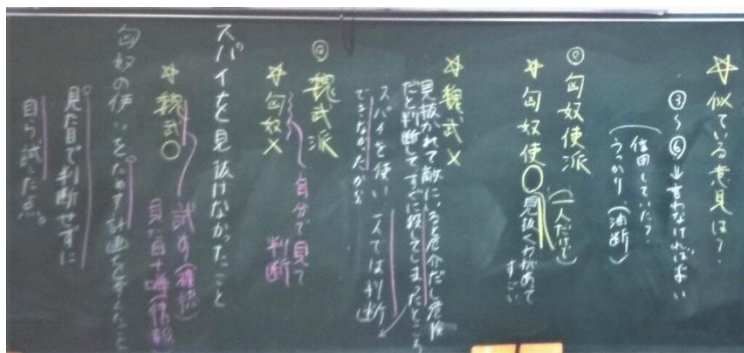 ☆似ている意見は?
③〜⑥→言わなければよい
(信用していた?
うっかり(油断)
◎匈奴使派(一人だけど)
☆匈奴使○見抜く力があって
すごい
☆魏武×
見抜かれて敵にいると厄介だし危険
だと判断してすぐ殺してしまったところ
スパイを使い一人では判断
できなかったから
◎魏武派
☆匈奴×
自分で見て
判断
スパイを見抜けなかったこと
☆魏武○
試す(確認)
見た目+噂(情報)
匈奴の使いをためす計画を
見た目で判断せずに
自ら試した点。